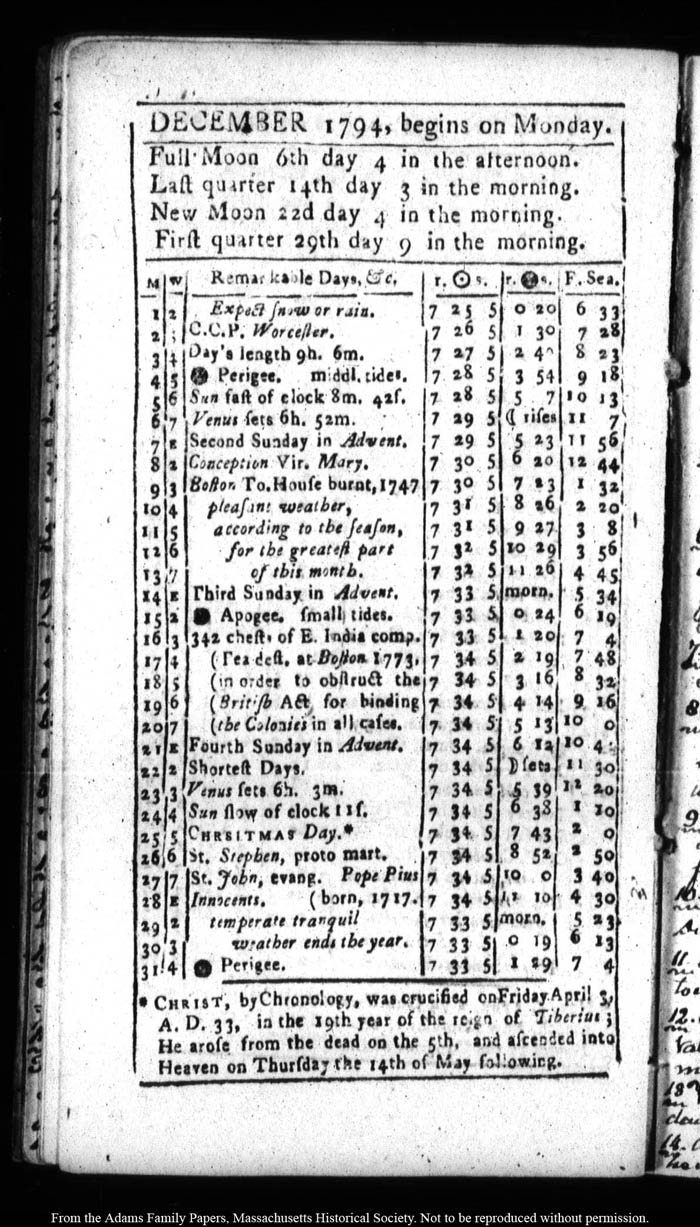 DECEMBER 1794, begins on Monday.
Full Moon 6th day 4 in the afternoon.
Laſt quarter 14th day 3 in the morning.
New Moon 22d day 4 in the morning.
Firſt quarter 29th day 9 in the morning.
M W Remarkable Days, &c. r. ☉ s. r. s. F. Sea.
1 2 Expect ſnow or rain. 7 25 5 0 20 6 33
2 C.C.P. Worceſter. 7 26 5 1 30 7 28
3 4 Day's length 9h. 6m. 7 27 5 2 4 8 23
4 5 Perigee. middl. tides. 7 28 5 3 54 9 18
5 6 Sun faſt of clock 8m. 42ſ. 7 28 5 5 7 10 13
6 7 Venus ſets 6h. 52m. 7 29 5 ☾ riſes 11 7
7 E Second Sunday in Advent. 7 29 5 5 23 11 56
8 2 Conception Vir. Mary. 7 30 5 6 20 12 44
9 3 Boſton To. Houſe burnt, 1747 7 30 5 7 23 1 32
10 4 pleaſant weather, 7 31 5 8 26 2 20
11 5 according to the ſeaſon, 7 31 5 9 27 3 8
12 6 for the greateſt part 7 32 5 10 29 3 56
13 7 of this month. 7 32 5 11 26 4 45
14 E Third Sunday in Advent. 7 33 5 morn. 5 34
15 2 Apogee. ſmall tides. 7 33 5 0 24 6 19
16 3 342 cheſts of E. India comp. 7 33 5 1 20 7 4
17 4 (Tea deſt. at Boſton 1773, 7 34 5 2 19 7 48
18 5 (in order to obſtruct the 7 34 5 3 16 8 32
19 6 (Britiſh Act for binding 7 34 5 4 14 9 16
20 7 (the Colonies in all caſes. 7 34 5 5 13 10 0
21 E Fourth Sunday in Advent. 7 34 5 6 12 10 4
22 2 Shorteſt Days. 7 34 5 ☽ ſets 11 30
23 3 Venus ſets 6h. 3m. 7 34 5 5 39 12 20
24 4 Sun ſlow of clock 11ſ. 7 34 5 6 38 1 10
25 5 CHRSITMAS Day.* 7 34 5 7 43 2 0
26 6 St. Stephen, proto mart. 7 34 5 8 52 2 50
27 7 St. John, evang. Pope Pius 7 34 5 10 0 3 40
28 E Innocents. (born, 1717. 7 34 5 11 10 4 30
29 2 temperate tranquil 7 33 5 morn. 5 23
30 3 weather ends the year. 7 33 5 0 19 6 13
31 4 Perigee. 7 33 5 1 29 7 4
* CHRIST, by Chronology, was crucified on Friday April 3,
A. D. 33, in the 19th year of the reign of Tiberius;
He aroſe from the dead on the 5th, and aſcended into
Heaven on Thurſday the 14th of May following.
From the Adams Family Papers, Massachusetts Historical Society. Not to be reproduced without permission.